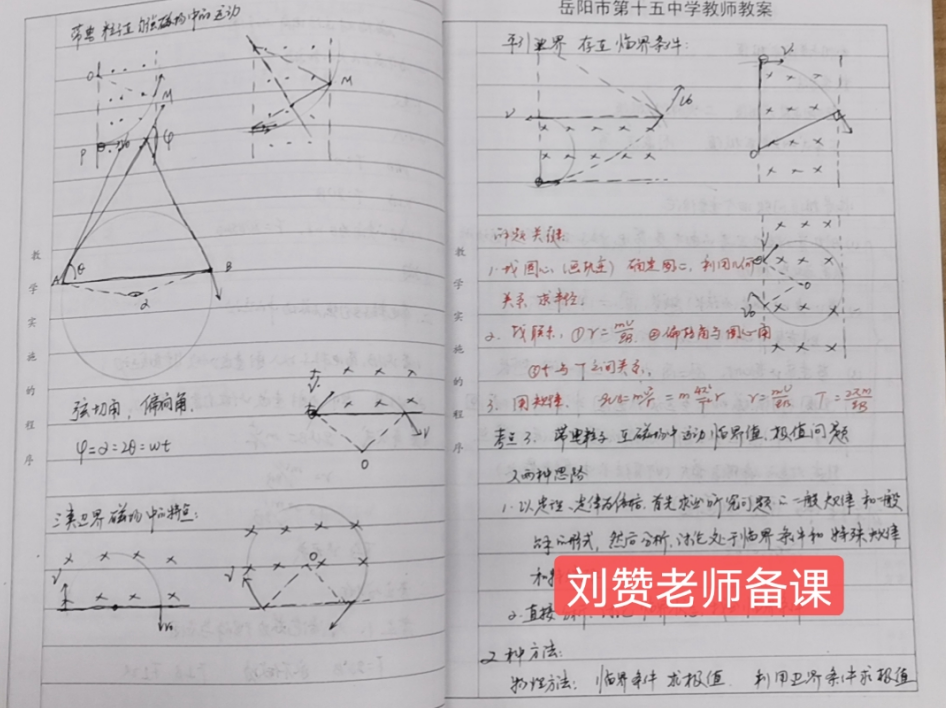 带电粒子在匀强磁场中的运动
O
M
P
φ
A
θ
B
α
弦切角、偏向角
φ=α=2θ=ωt
v
O
三类边界磁场中的特点:
v
v
O
v
教学实施的程序
岳阳市第十五中学教师教案
平行边界 存在临界条件:
v
v0
v
解题关键:
1.找圆心(画轨迹)确定圆心,利用几何
关系求半径:
2.找联系:①r=mv/qB ②偏转角与圆心角
③t与T之间关系:
3.用规律: qvB=mv²/r=m4π²/T²r r=mv/qB T=2πm/qB
考点3、带电粒子在磁场中运动临界值、极值问题
2两种思路
1.以定理、定律为依据,首先求出所究问题的一般规律和一般
的形式,然后分析、讨论处于临界条件和特殊规律
和
刘赞老师备课
2.直接
2种方法:
物理方法: 临界条件求极值、 利用边界条件求极值
教学实施的程序